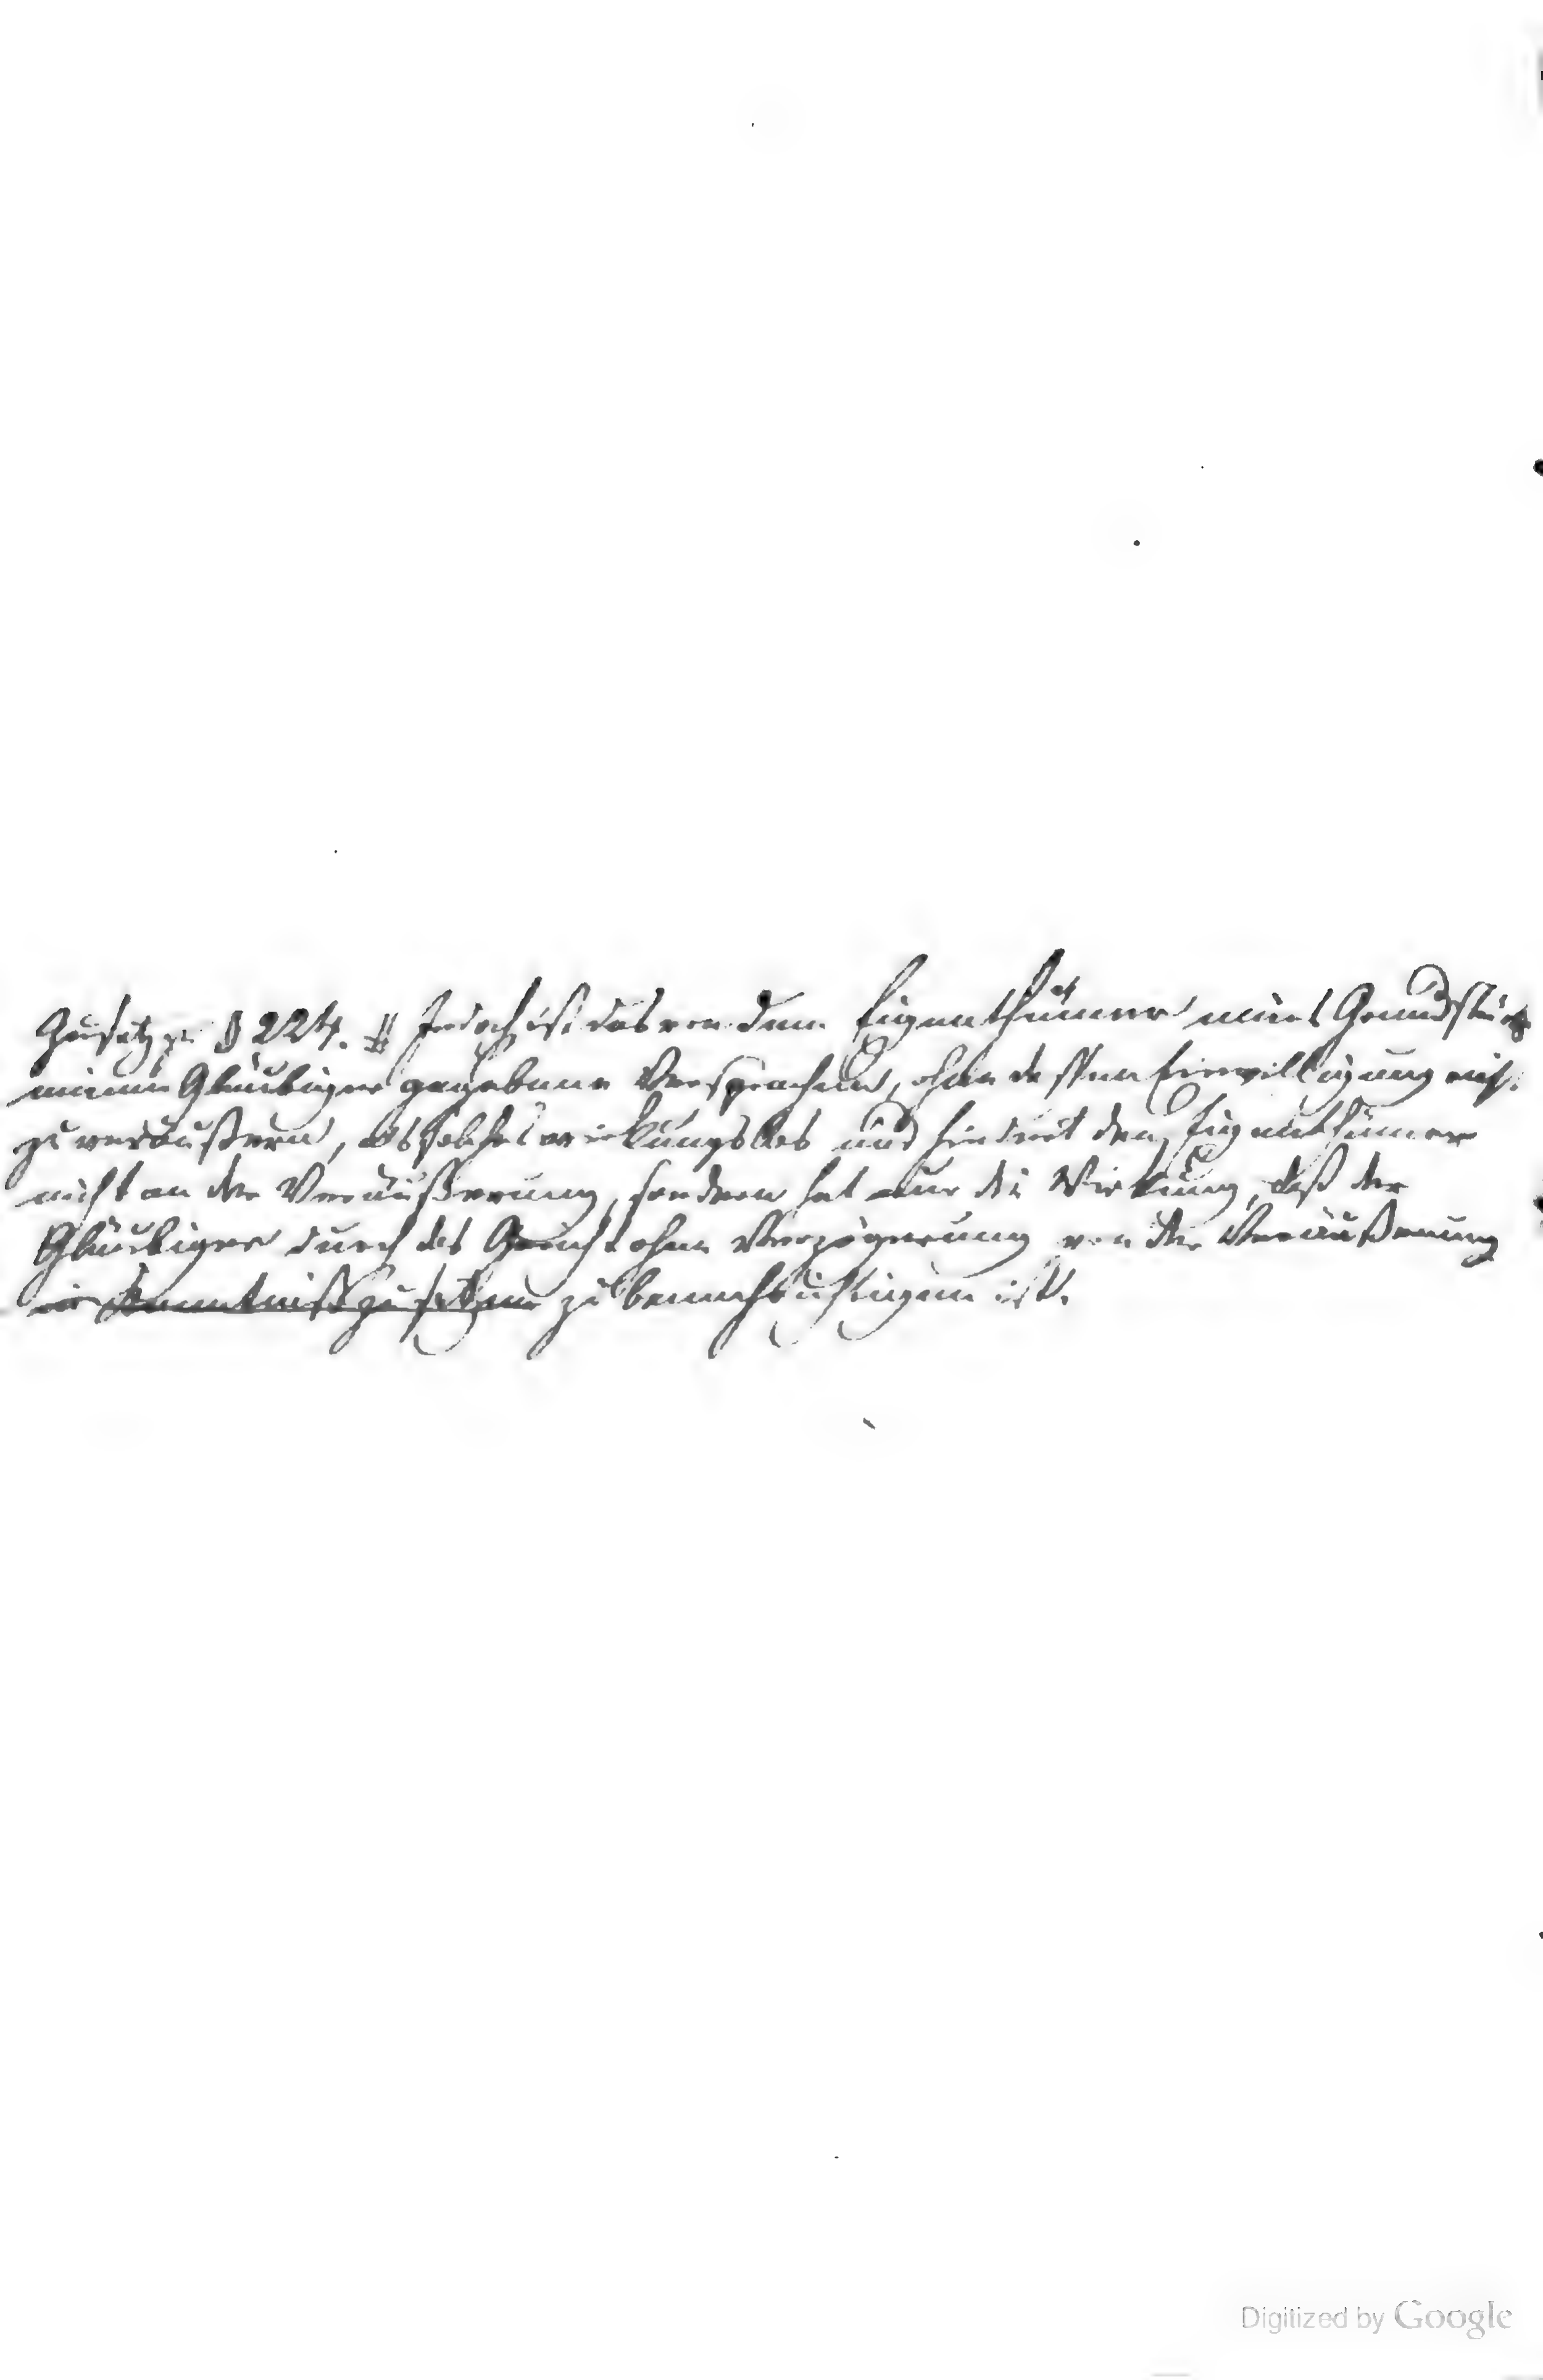 Zusatz zu § 224. # Jedoch ist das von dem Eigenthümer eines Grundstücks
einem Gläubiger gegebene Versprechen, ohne dessen Einwilligung nicht
zu veräußern, als solches wirkungslos und hindert den Eigenthümer
nicht an der Veräußerung, sondern hat nur die Wirkung, daß der
Gläubiger durch das Gericht ohne Verzögerung von der Veräußerung
in Kenntniß zu setzen zu benachrichtigen ist.
Digitized by Google